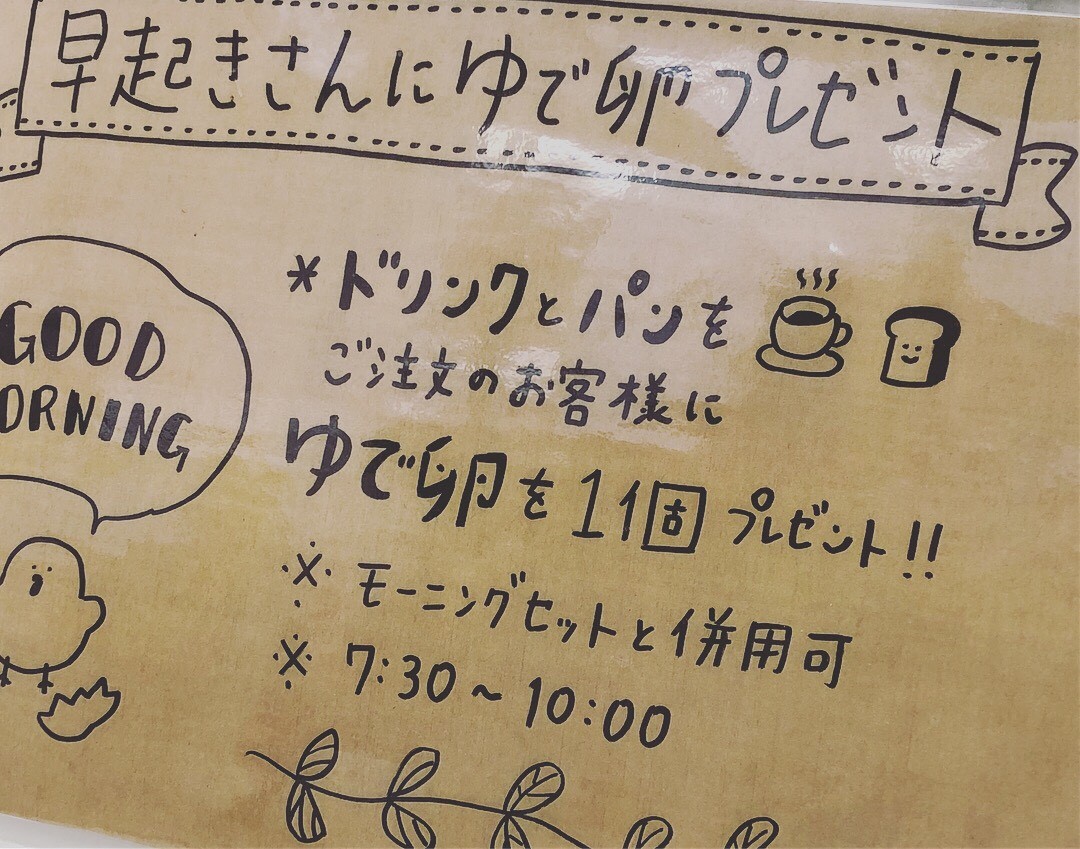 早起きさんにゆで卵プレゼント
GOOD
ORNING
*ドリンクとパンを
ご注文のお客様に
ゆで卵を1個プレゼント!!
※ モーニングセットと併用可
※ 7:30~10:00